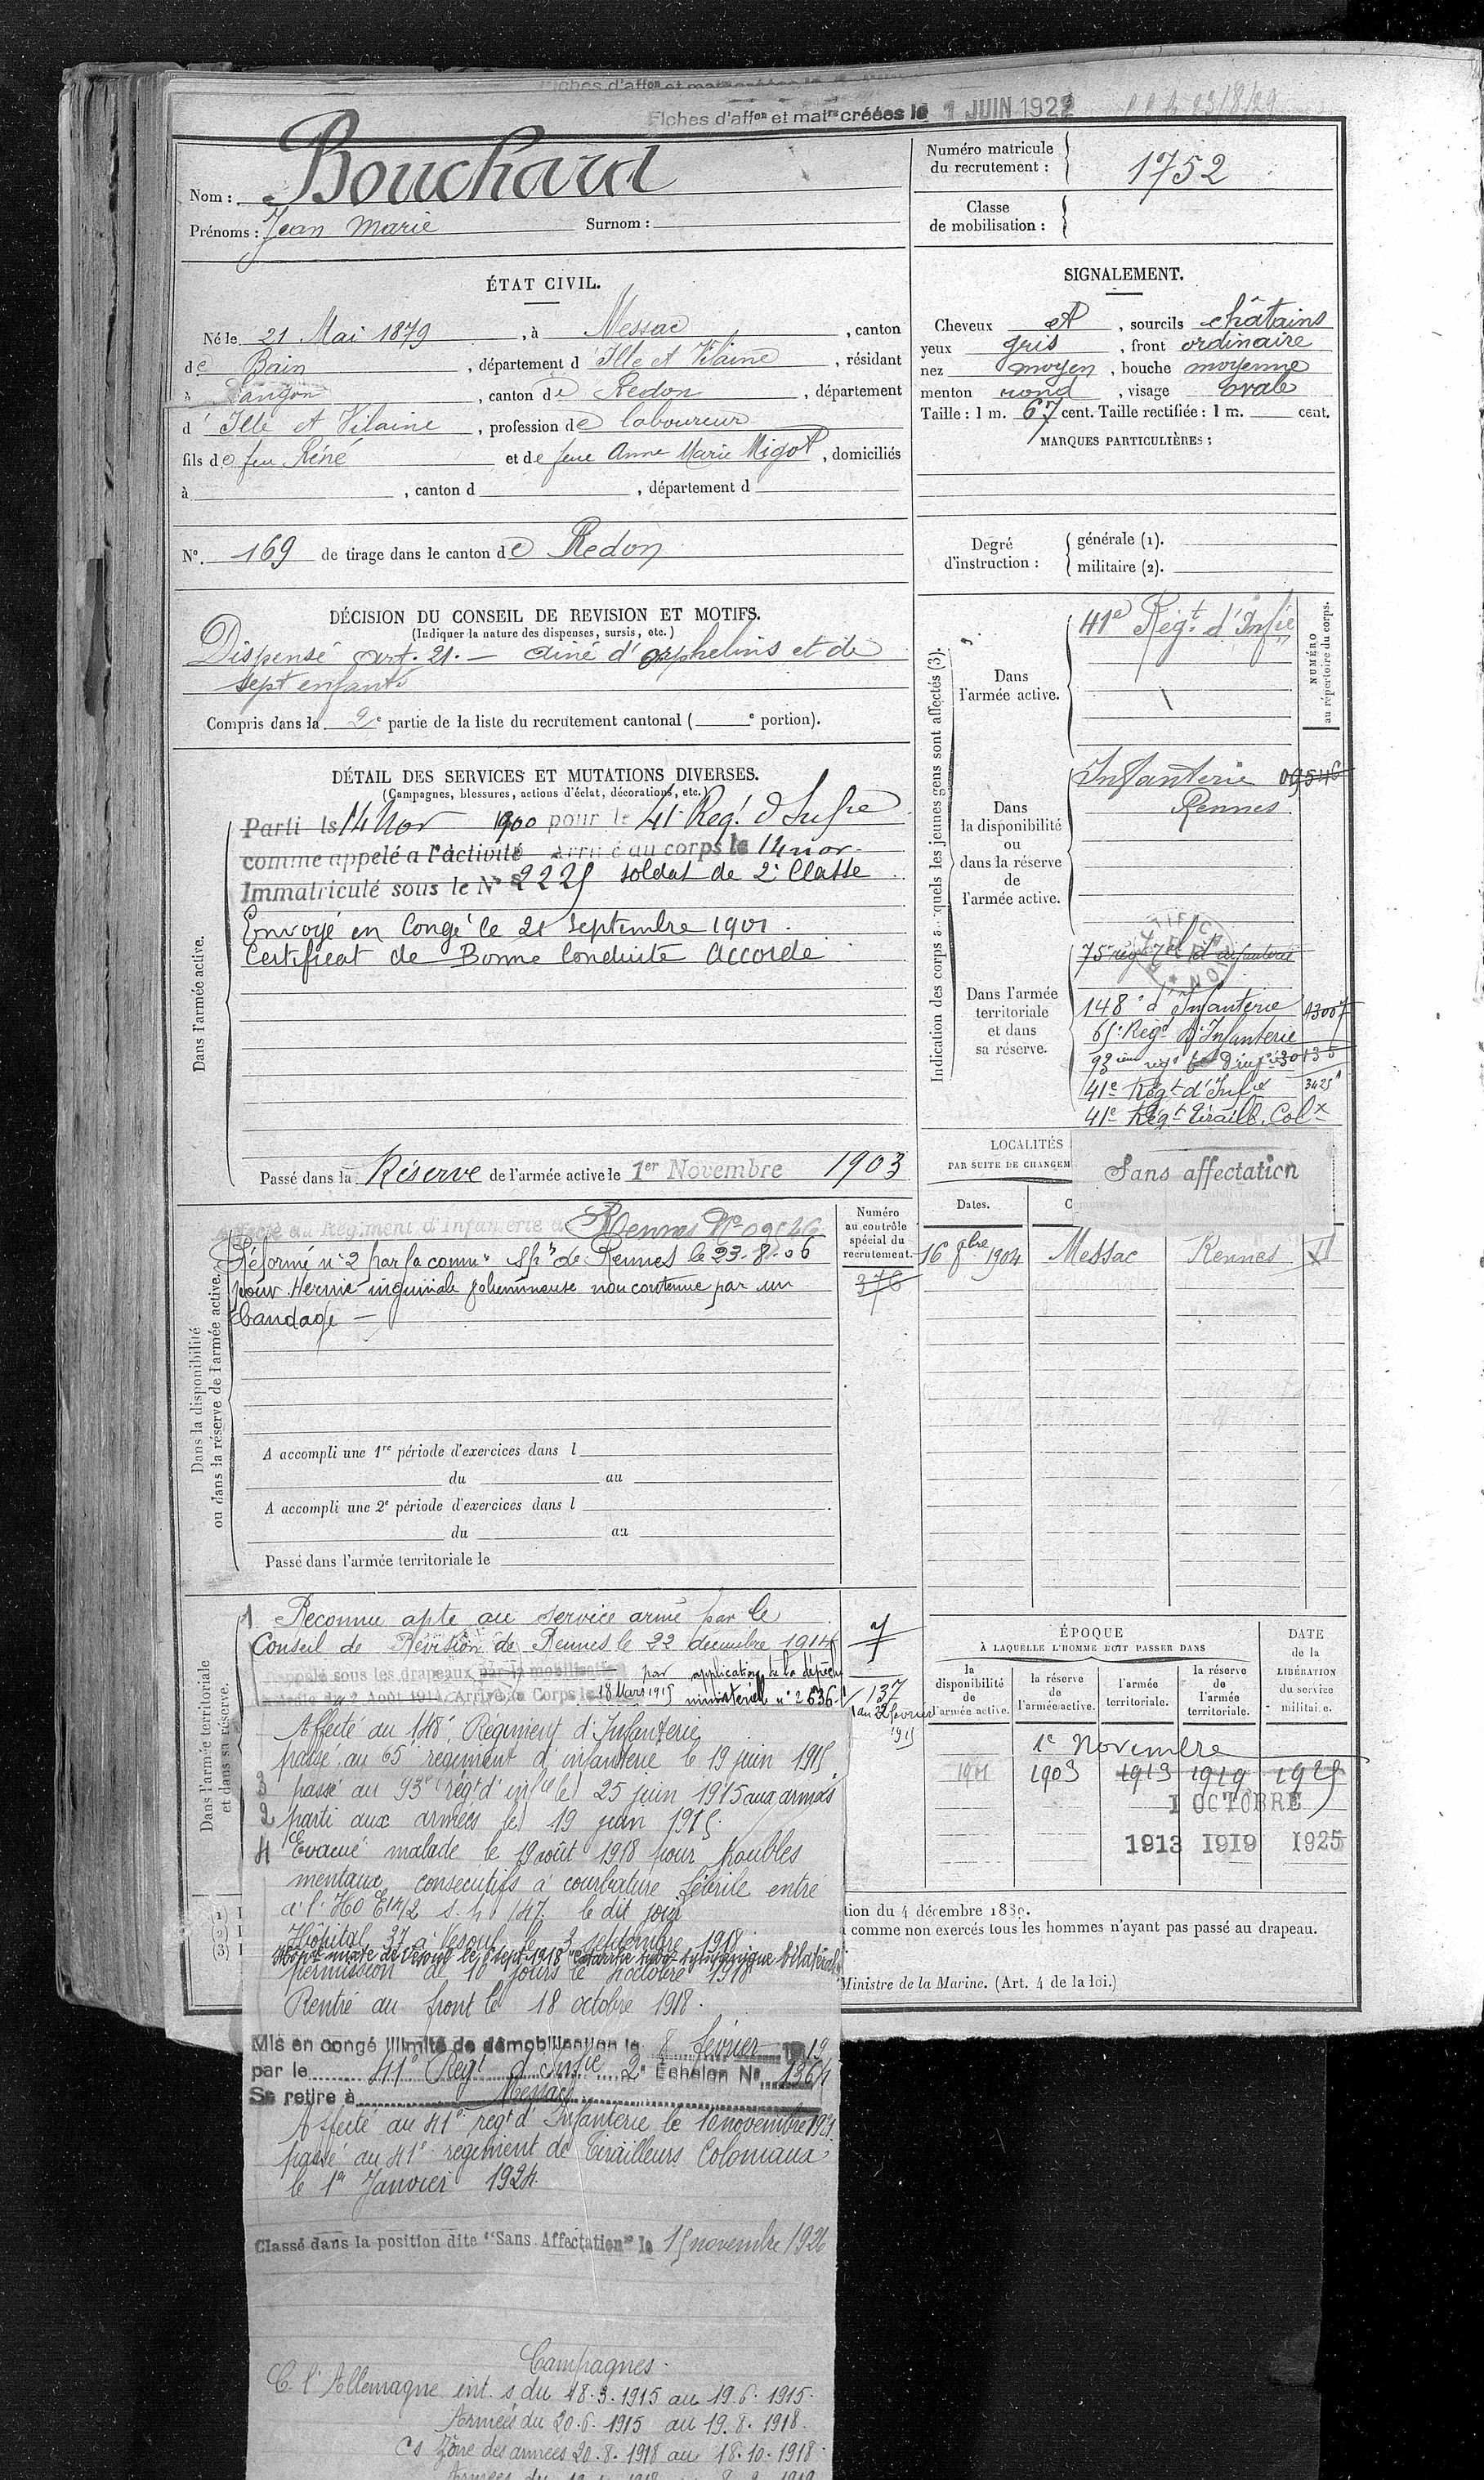 Fiches d'affon et matres créées le 1 JUIN 1922
Nom : Bouchard
Prénoms : Jean Marie Surnom :
Numéro matricule du recrutement : 1752
Classe de mobilisation :
ÉTAT CIVIL.
Né le 21 Mai 1879, à Messac, canton
de Bain, département d'Ille et Vilaine, résidant
à Langon, canton de Redon, département
d'Ille et Vilaine, profession de laboureur
fils de feu Réné et de feue Anne Marie Migot, domiciliés
à , canton d , département d
N°. 169 de tirage dans le canton de Redon
SIGNALEMENT.
Cheveux et, sourcils châtains
yeux gris, front ordinaire
nez moyen, bouche moyenne
menton rond, visage ovale
Taille : 1 m. 67 cent. Taille rectifiée : 1 m. cent.
MARQUES PARTICULIÈRES :
Degré d'instruction : générale (1).
militaire (2).
DÉCISION DU CONSEIL DE REVISION ET MOTIFS.
(Indiquer la nature des dispenses, sursis, etc.)
Dispensé art. 21. — aîné d'orphelins et de
sept enfants
Compris dans la 2e partie de la liste du recrutement cantonal ( e portion).
DÉTAIL DES SERVICES ET MUTATIONS DIVERSES.
(Campagnes, blessures, actions d'éclat, décorations, etc.)
Dans l'armée active.
Parti le 14 Nov 1900 pour le 41 Regt d'Infie
comme appelé a l'activité Arrivé au corps le 14 nov.
Immatriculé sous le N° 2225 soldat de 2e Classe
Envoyé en Congé le 21 Septembre 1901.
Certificat de Bonne Conduite Accordé
Passé dans la Réserve de l'armée active le 1er Novembre 1903
Indication des corps auxquels les jeunes gens sont affectés (3).
NUMÉRO au répertoire du corps.
Dans l'armée active.
41e Régt d'Infie
Dans la disponibilité ou dans la réserve de l'armée active.
Infanterie 09546
Rennes
Dans l'armée territoriale et dans sa réserve.
148e d'Infanterie 13007
65e Régt d'Infanterie
93ième
41e Régt d'Infie 3425
41e Régt Tiraill. Colx
LOCALITÉS
PAR SUITE DE CHANGEM
Sans affectation
Dates.
16 9bre 1904 Messac Rennes
Dans la disponibilité ou dans la réserve de l'armée active.
Affecté au Régiment d'Infanterie de Rennes N° 09546
Numéro au contrôle spécial du recrutement.
376
Réformé n° 2 par la comon sple de Rennes le 23-8-06
pour Hernie inguinale volumineuse non contenue par un
bandage —
A accompli une 1re période d'exercices dans l
du au
A accompli une 2e période d'exercices dans l
du au
Passé dans l'armée territoriale le
Dans l'armée territoriale et dans sa réserve.
1 Reconnu apte au service armé par le
Conseil de Révision de Rennes le 22 décembre 1914
Rappelé sous les drapeaux par la mobilisation par application de la dépêche
du 2 Août 1914. Arrivé au Corps le 18 Mars 1915 ministérielle n° 2636
137
du 22 février
1915
Affecté au 148e Régiment d'Infanterie
passé au 65e régiment d'infanterie le 19 juin 1915.
3 passé au 93e régt d'infie le 25 juin 1915 aux armées
2 parti aux armées le 19 juin 1915.
4 Evacué malade le 19 août 1918 pour troubles
mentaux consécutifs à courbature fébrile entré
à l'HO le dit jour
Hôpital 37 à Vesoul le 3 septembre 1918
Hôpital mixte de Vesoul le 8 sept 1918 "catarrhe tubo-tympanique bilatéral"
permission de 10 jours le 4 octobre 1918
Rentré au front le 18 octobre 1918.
Mis en congé illimité de démobilisation le 8 février 1919
par le 41e Régt d'Infie 2e Echelon N° 1364
Se retire à Messac
Affecté au 41e régt d'Infanterie le 10 novembre 1921.
passé au 41e régiment de Tirailleurs Coloniaux
le 1er Janvier 1924.
Classé dans la position dite "Sans Affectation" le 15 novembre 1926
Campagnes.
C. l'Allemagne int. s du 18.3.1915 au 19.6.1915.
Armées du 20.6.1915 au 19.8.1918.
cs Zone des armées 20.8.1918 au 18.10.1918.
ÉPOQUE
À LAQUELLE L'HOMME DOIT PASSER DANS
la disponibilité de l'armée active.
la réserve de l'armée active.
l'armée territoriale.
la réserve de l'armée territoriale.
DATE de la LIBÉRATION du service militaire.
1er Novembre
1901 1903 1913 1919 1925
1 OCTOBRE
1913 1919 1925
(1) I
(2) I
(3) I
tion du 4 décembre 1889.
comme non exercés tous les hommes n'ayant pas passé au drapeau.
Ministre de la Marine. (Art. 4 de la loi.)